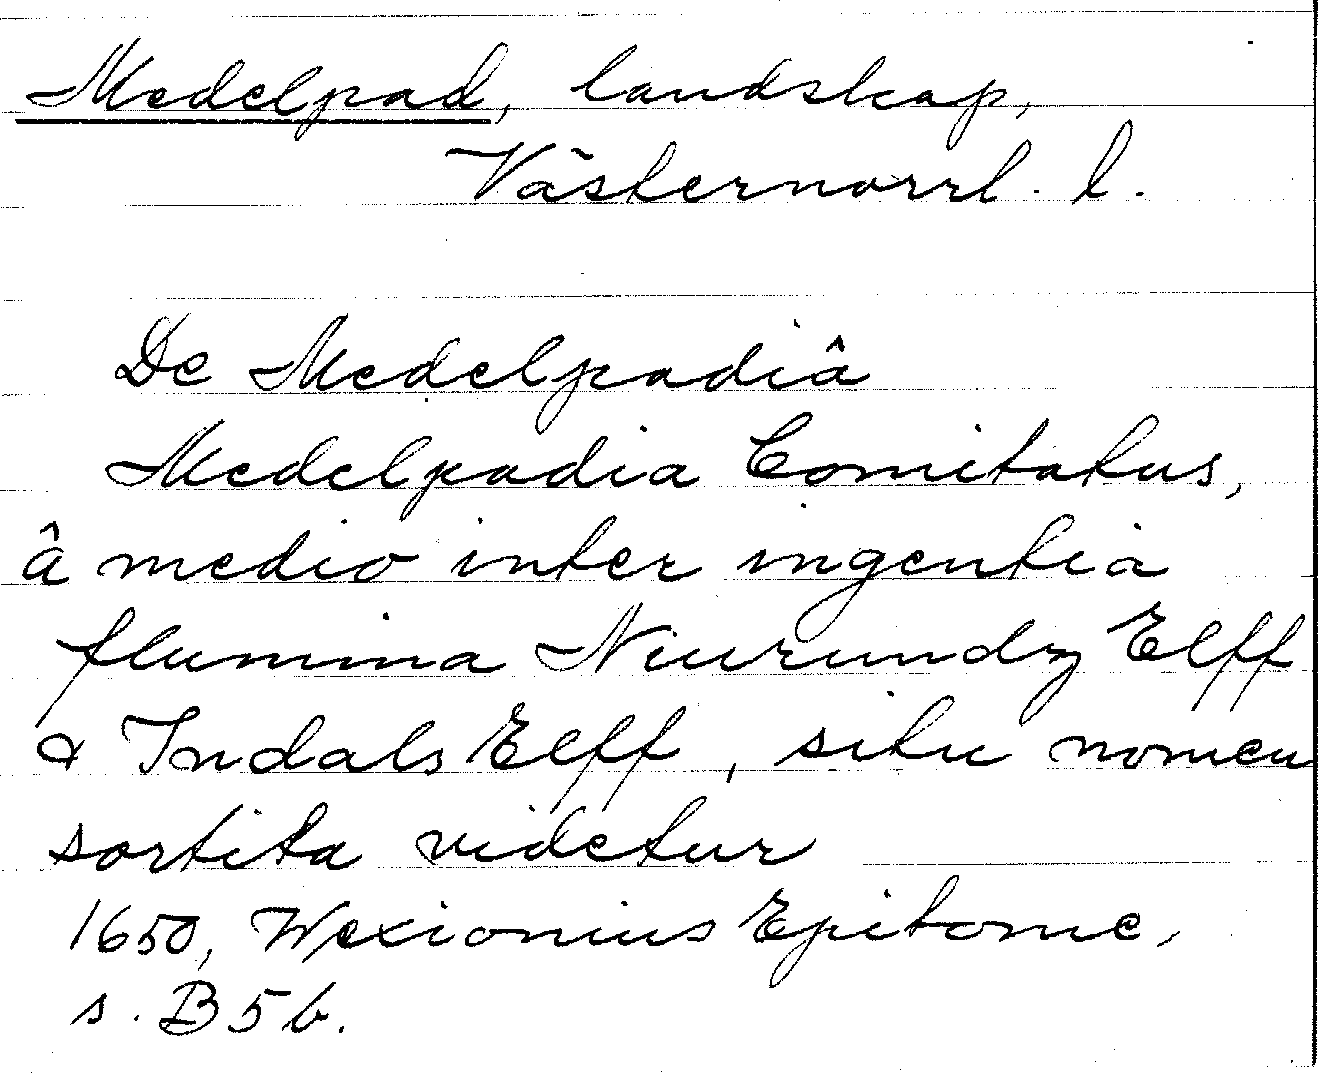 Medelpad, landskap,
Västernorrl. l.
De Medelpadiâ
Medelpadia Comitatus,
â medio inter ingentia
flumina Niurundz Elff
& Indals Elff, situ nomen
sortita videtur
1650, Wexionius Epitome,
s. B5b.